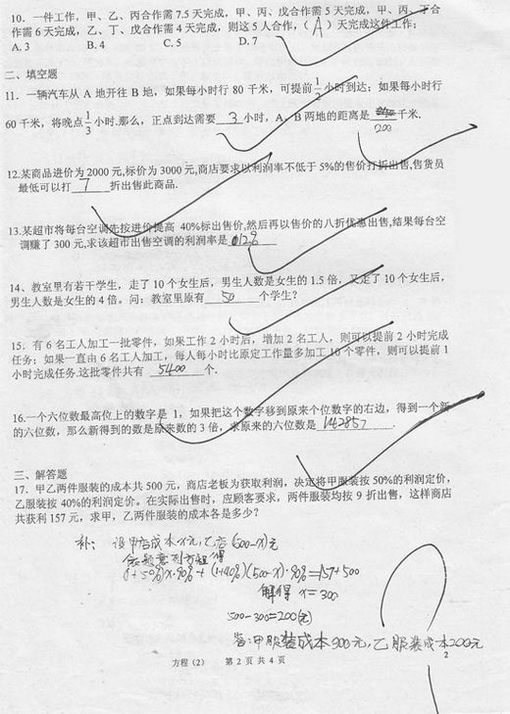 10. 一件工作，甲、乙、丙合作需 7.5 天完成，甲、丙、戊合作需 5 天完成，甲、丙、丁合
作需 6 天完成，乙、丁、戊合作需 4 天完成，则这 5 人合作，（ A ）天完成这件工作；
A. 3 B. 4 C. 5 D. 7
二、填空题
11. 一辆汽车从 A 地开往 B 地，如果每小时行 80 千米，可提前 1/2 小时到达；如果每小时行
60 千米，将晚点 1/3 小时.那么，正点到达需要 3 小时，A、B 两地的距离是 200 千米.
12.某商品进价为 2000 元,标价为 3000 元,商店要求以利润率不低于 5%的售价打折出售,售货员
最低可以打 7 折出售此商品.
13.某超市将每台空调先按进价提高 40%标出售价,然后再以售价的八折优惠出售,结果每台空
调赚了 300 元,求该超市出售空调的利润率是 12%
14、教室里有若干学生，走了 10 个女生后，男生人数是女生的 1.5 倍，又走了 10 个女生后，
男生人数是女生的 4 倍。问：教室里原有 50 个学生？
15．有 6 名工人加工一批零件，如果工作 2 小时后，增加 2 名工人，则可以提前 2 小时完成
任务；如果一直由 6 名工人加工，每人每小时比原定工作量多加工 10 个零件，则可以提前 1
小时完成任务.这批零件共有 5400 个.
16.一个六位数最高位上的数字是 1，如果把这个数字移到原来个位数字的右边，得到一个新
的六位数，那么新得到的数是原来数的 3 倍，求原来的六位数是 142857 .
三、解答题
17．甲乙两件服装的成本共 500 元，商店老板为获取利润，决定将甲服装按 50%的利润定价，
乙服装按 40%的利润定价。在实际出售时，应顾客要求，两件服装均按 9 折出售，这样商店
共获利 157 元，求甲，乙两件服装的成本各是多少？
设甲店成本x元,乙店(500-x)元
依题意列方程得
(1+50%)x·90%+(1+40%)(500-x)·90%=157+500
解得 x=300
500-300=200(元)
答:甲服装成本300元,乙服装成本200元
方程（2） 第 2 页 共 4 页
2